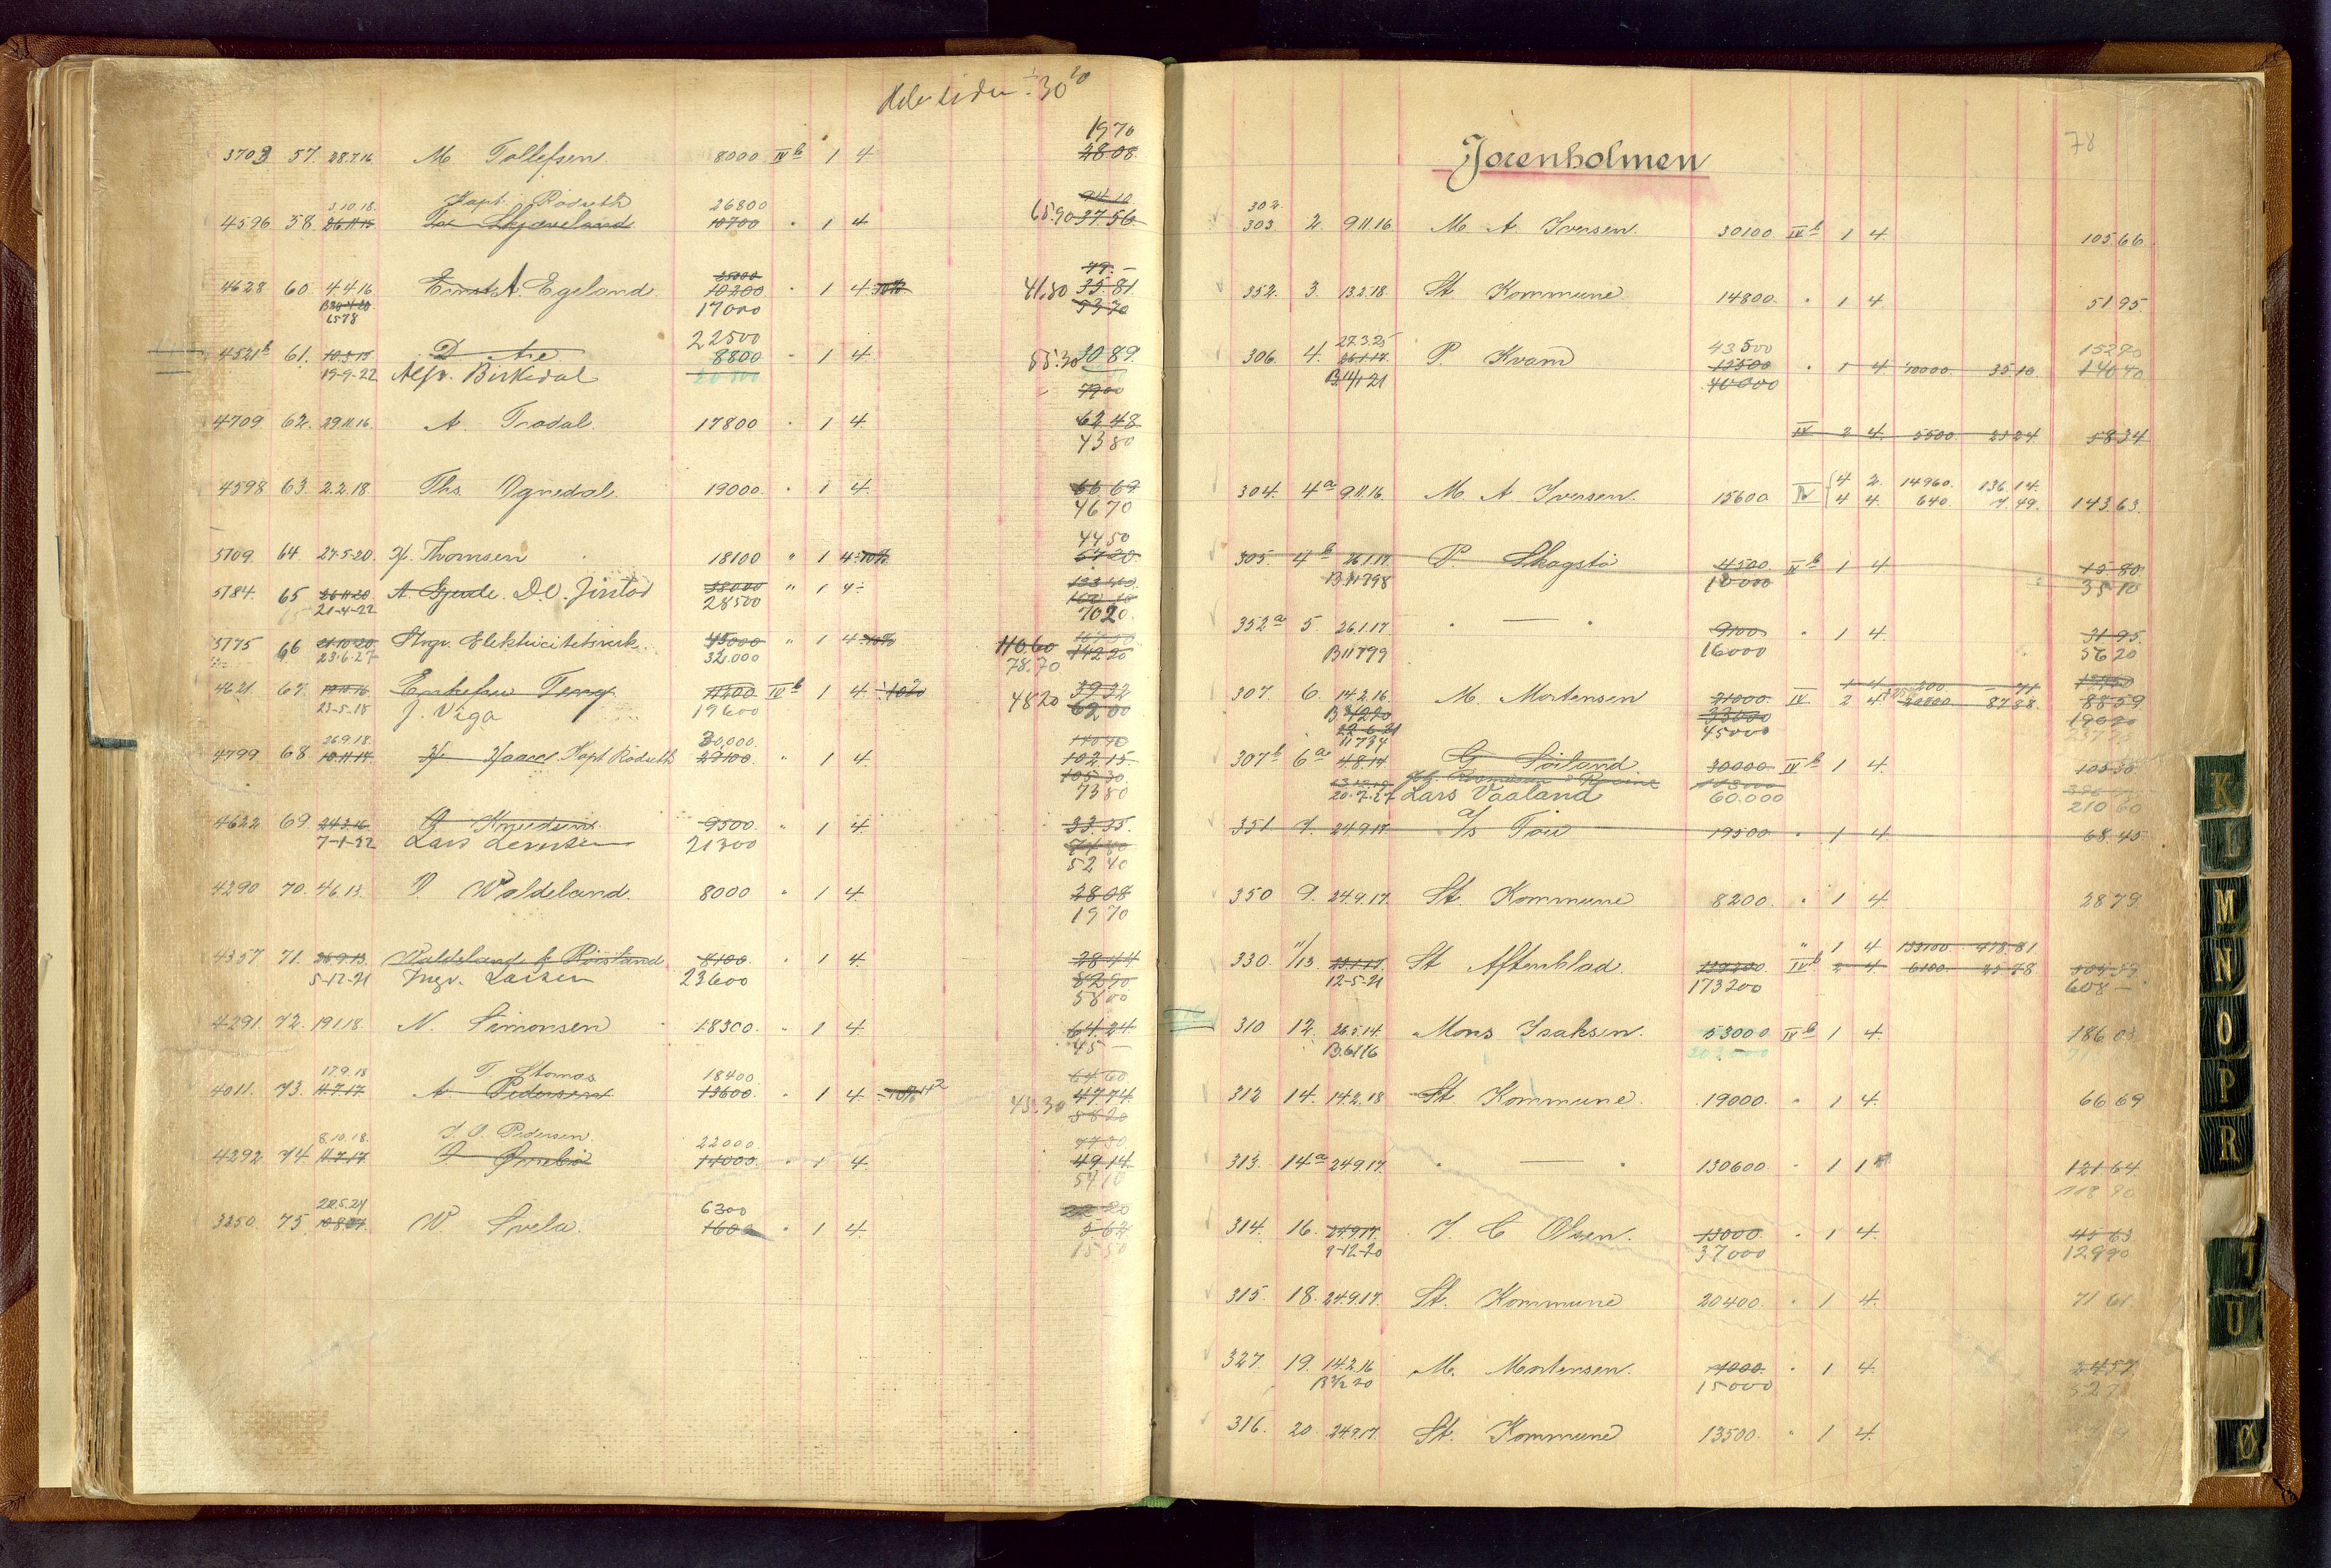 Hele siden ÷ 30%
1970
3703 57. 28.7.16 M Tollefsen. 8000 IV b 1 4 28 08.
3.10.18. Kapt. Rödseth 26800 94 10
4596 58. 26.11.15 Skjæveland 10700 " 1 4 65.90 37.56
25000 79.–
4628 60. 4.4.16 Ernst A. Egeland 10200 " 1 4 10% 41.80 35.81
6578 17000 53 70
22500
4521b 61. 10.5.15 D. Are 8800 " 1 4 55.30 30 89
19-9-22 Alfr. Birkedal 20700 79 00
4709 62. 29.11.16. A. Tradal. 17800 " 1 4 62.48
43 80
4598 63. 2.2.18 Ths. Ognedal. 19000. " 1 4. 66 69
46 70
44 50
5709. 64 27-5-20. Hj. Thomsen 18100 " 1 4 10% 67 20.
5784. 65 26.11.20 A. Gjende. D.O. Jirstad 38000 " 1 4
21-4-22 28500 70 20
5775 66 21.10.20 Stvgr. Elektricitetsverk. 45000 " 1 4 10% 110.60
23.6.27 32.000 78.70 142 20
4621 67. 10.11.16 Enkefru Terry 11200 IV b 1 4 10% 48 20 39 32
23-5-18 J. Viga 19600 62 00
26.9.18. 30,000.
4799 68 10.11.14. Hj. Haave Kapt. Rödseth 29100. " 1 4 102.15
105.30.
73 80
4622 69. 24.3.16 G Knudsen. 9500. " 1 4 33.35.
7-1-22 Lars Levertsen 21300 74 80
52 40
4290 70. 4.6.13. D Waldeland. 8000 " 1 4 28 08
19 70
4357 71. 26.9.13. Waldeland & Röisland 8100. " 1 4 28 44
5-12-21 Ingv. Larsen 23600 82 90
58 00
4291. 72. 19.1.18. N. Simonsen 18300. " 1 4 64.24
45 –
17.9.18 T. Stornes 18400 64 60
4011. 73. 11.7.17 A. Pedersen 13600. " 1 4 10% 45.30 47.74
58 20
8.10.18. J. O. Pedersen. 22000. 77 30
4292 74 11.7.17 14000. " 1 4. 49.14
54 10
22.5.24 6300 22 20
3250. 75. 10.8.07. W. Svela. 1600 " 1 4. 5.62
15 50
78
Jorenholmen
302.
303. 2. 9.11.16 M. A. Iversen. 30100. IV b 1 4. 105.66.
352. 3. 13.2.18 St. Kommune 14800. " 1 4. 51.95
27.3.25 43500 152 70
306. 4. 26.1.17. P. Kvam 13500 " 1 4 10000. 35.10. 140 40
B.14/1 21 40000
IV 2 4. 5500. 23 24. 58 34
304. 4a 9.11.16. M. A. Iversen. 15600 IV 4 2. 14960. 136.14.
4 4. 640. 7.49. 143.63.
305. 4b 26.1.17. P. Skagstö 4500. IV b 1 4 15.80
B.11798 10000 35 10
352a 5. 26.1.17. " — " 9100 " 1 4. 31 95
B11799 16000 56 20
1 4 200. –.71
307. 6. 14.2.16. M. Mortensen 21000. IV. 2 4 20800. 87 88. 88 59
33000
22-6-21 45000
11734
307b 6a 4.8.14 G. Soiland 30000 IV b 1 4. 105 30
20.7.27 Lars Vaaland 60.000 210 60
351. 7. 24.9.17. a/s Tou 19500. " 1 4. 68.45
350 9. 24.9.17. St. Kommune 8200. " 1 4. 28 79
" 1 4 133100. 478.81
330. 11/13. 23.1.17. St. Aftenblad 139200 IV b 2 4 6100. 25 78 504 59
12-5-21 173200 608 –
310 12. 26.5.14 Mons Isaksen. 53000 IV b 1 4 186 03
B.6116
312 14. 14.2.18 St. Kommune. 19000. " 1 4. 66 69
313. 14a 24.9.17. " — " 130600. " 1 1 121 64
118 90
314. 16. 24.9.17. J. C. Olsen. 13000. " 1 4 45 63
9-12-20 37000 129 90
315. 18. 24.9.17. St. Kommune 20400. " 1 4. 71 61
327. 19. 14.2.16 M. Mortensen. 7000. " 1 4. 24 57
15000 527
316. 20 24.9.17. St. Kommune 13500. " 1 4.
K
L
M
N
O
P
R
T
U
Ø